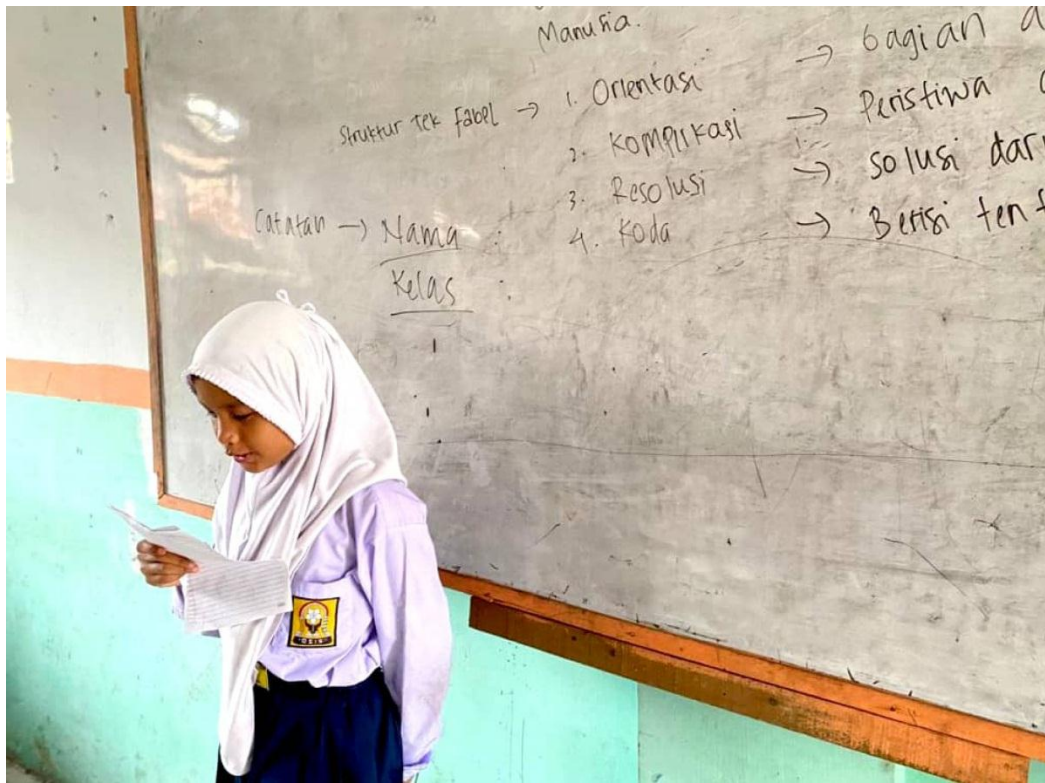 Manusia.
Struktur Tek Fabel → 1. Orientasi → bagian a
2. Komplikasi → Peristiwa
3. Resolusi → solusi dari
4. Koda → Berisi tent
Catatan → Nama :
Kelas :
OSIS